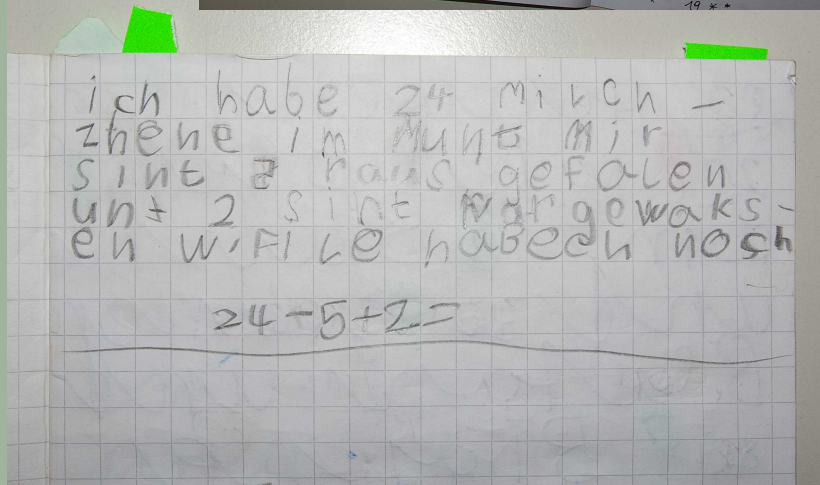 19 * *
ich habe 24 milch -
zhene im Munt mir
sint raus gefalen
unt 2 sint gewaks-
en wifile habech noch
24-5+2=